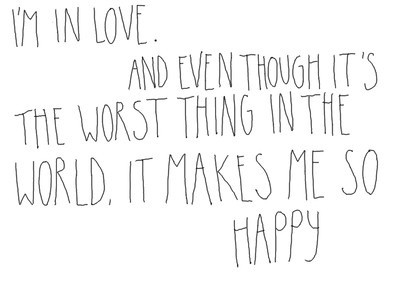 I'M IN LOVE.
AND EVEN THOUGH IT'S
THE WORST THING IN THE
WORLD, IT MAKES ME SO
HAPPY